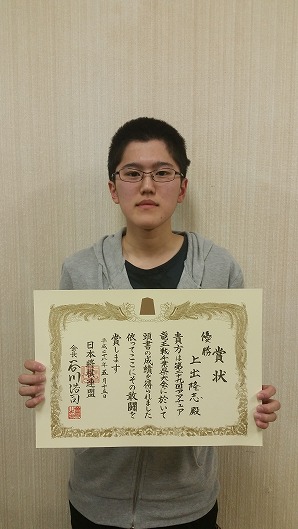 賞状
優勝
上出隆志殿
貴方は第二十九回アマチュア
竜王戦千葉県大会に於いて
頭書の成績を得されました
依ってここにその敢闘を
賞します
平成二十八年五月十五日
日本将棋連盟
会長 谷川浩司